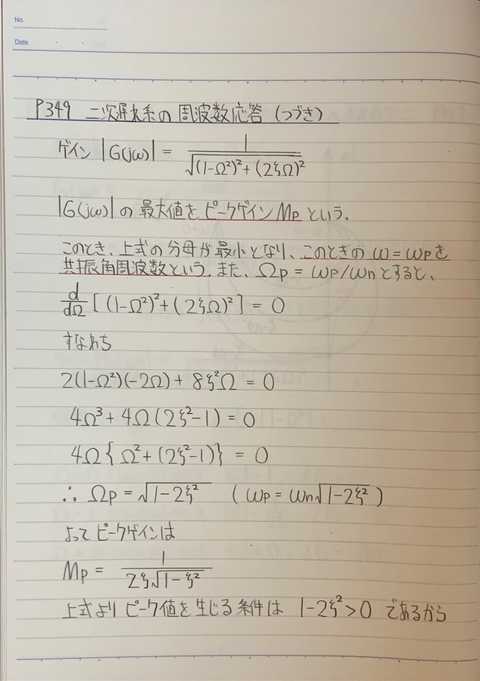 No.
Date
P349 二次遅れ系の周波数応答 (つづき)
ゲイン |G(jω)| = 1/√((1-Ω²)²+(2ζΩ)²)
|G(jω)| の最大値をピークゲイン Mp という。
このとき、上式の分母が最小となり、このときの ω = ωp を
共振角周波数という。また、Ωp = ωp/ωn とすると、
d/dΩ [(1-Ω²)²+(2ζΩ)²] = 0
すなわち
2(1-Ω²)(-2Ω) + 8ζ²Ω = 0
4Ω³ + 4Ω(2ζ²-1) = 0
4Ω{Ω²+(2ζ²-1)} = 0
∴ Ωp = √(1-2ζ²) (ωp = ωn√(1-2ζ²))
よってピークゲインは
Mp = 1/(2ζ√(1-ζ²))
上式よりピーク値を生じる条件は 1-2ζ²>0 であるから